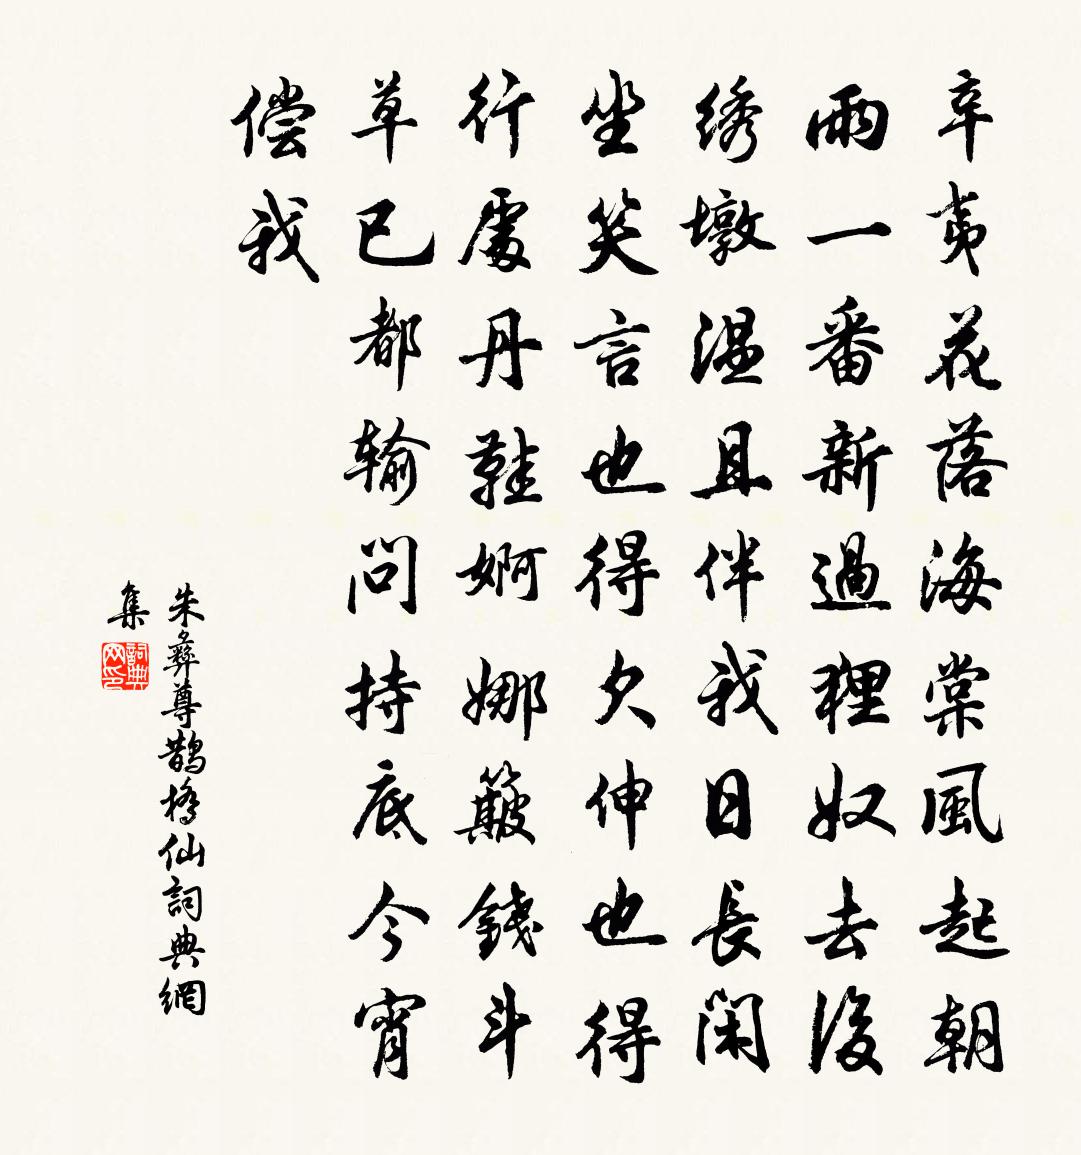 辛夷花落海棠風起朝
雨一番新過狸奴去後
绣墩温且伴我日長闲
坐笑言也得欠伸也得
行處丹鞋婀娜簸錢斗
草已都输问持底今宵
偿我
朱彝尊鹊橋仙詞典網
集
詞典网印